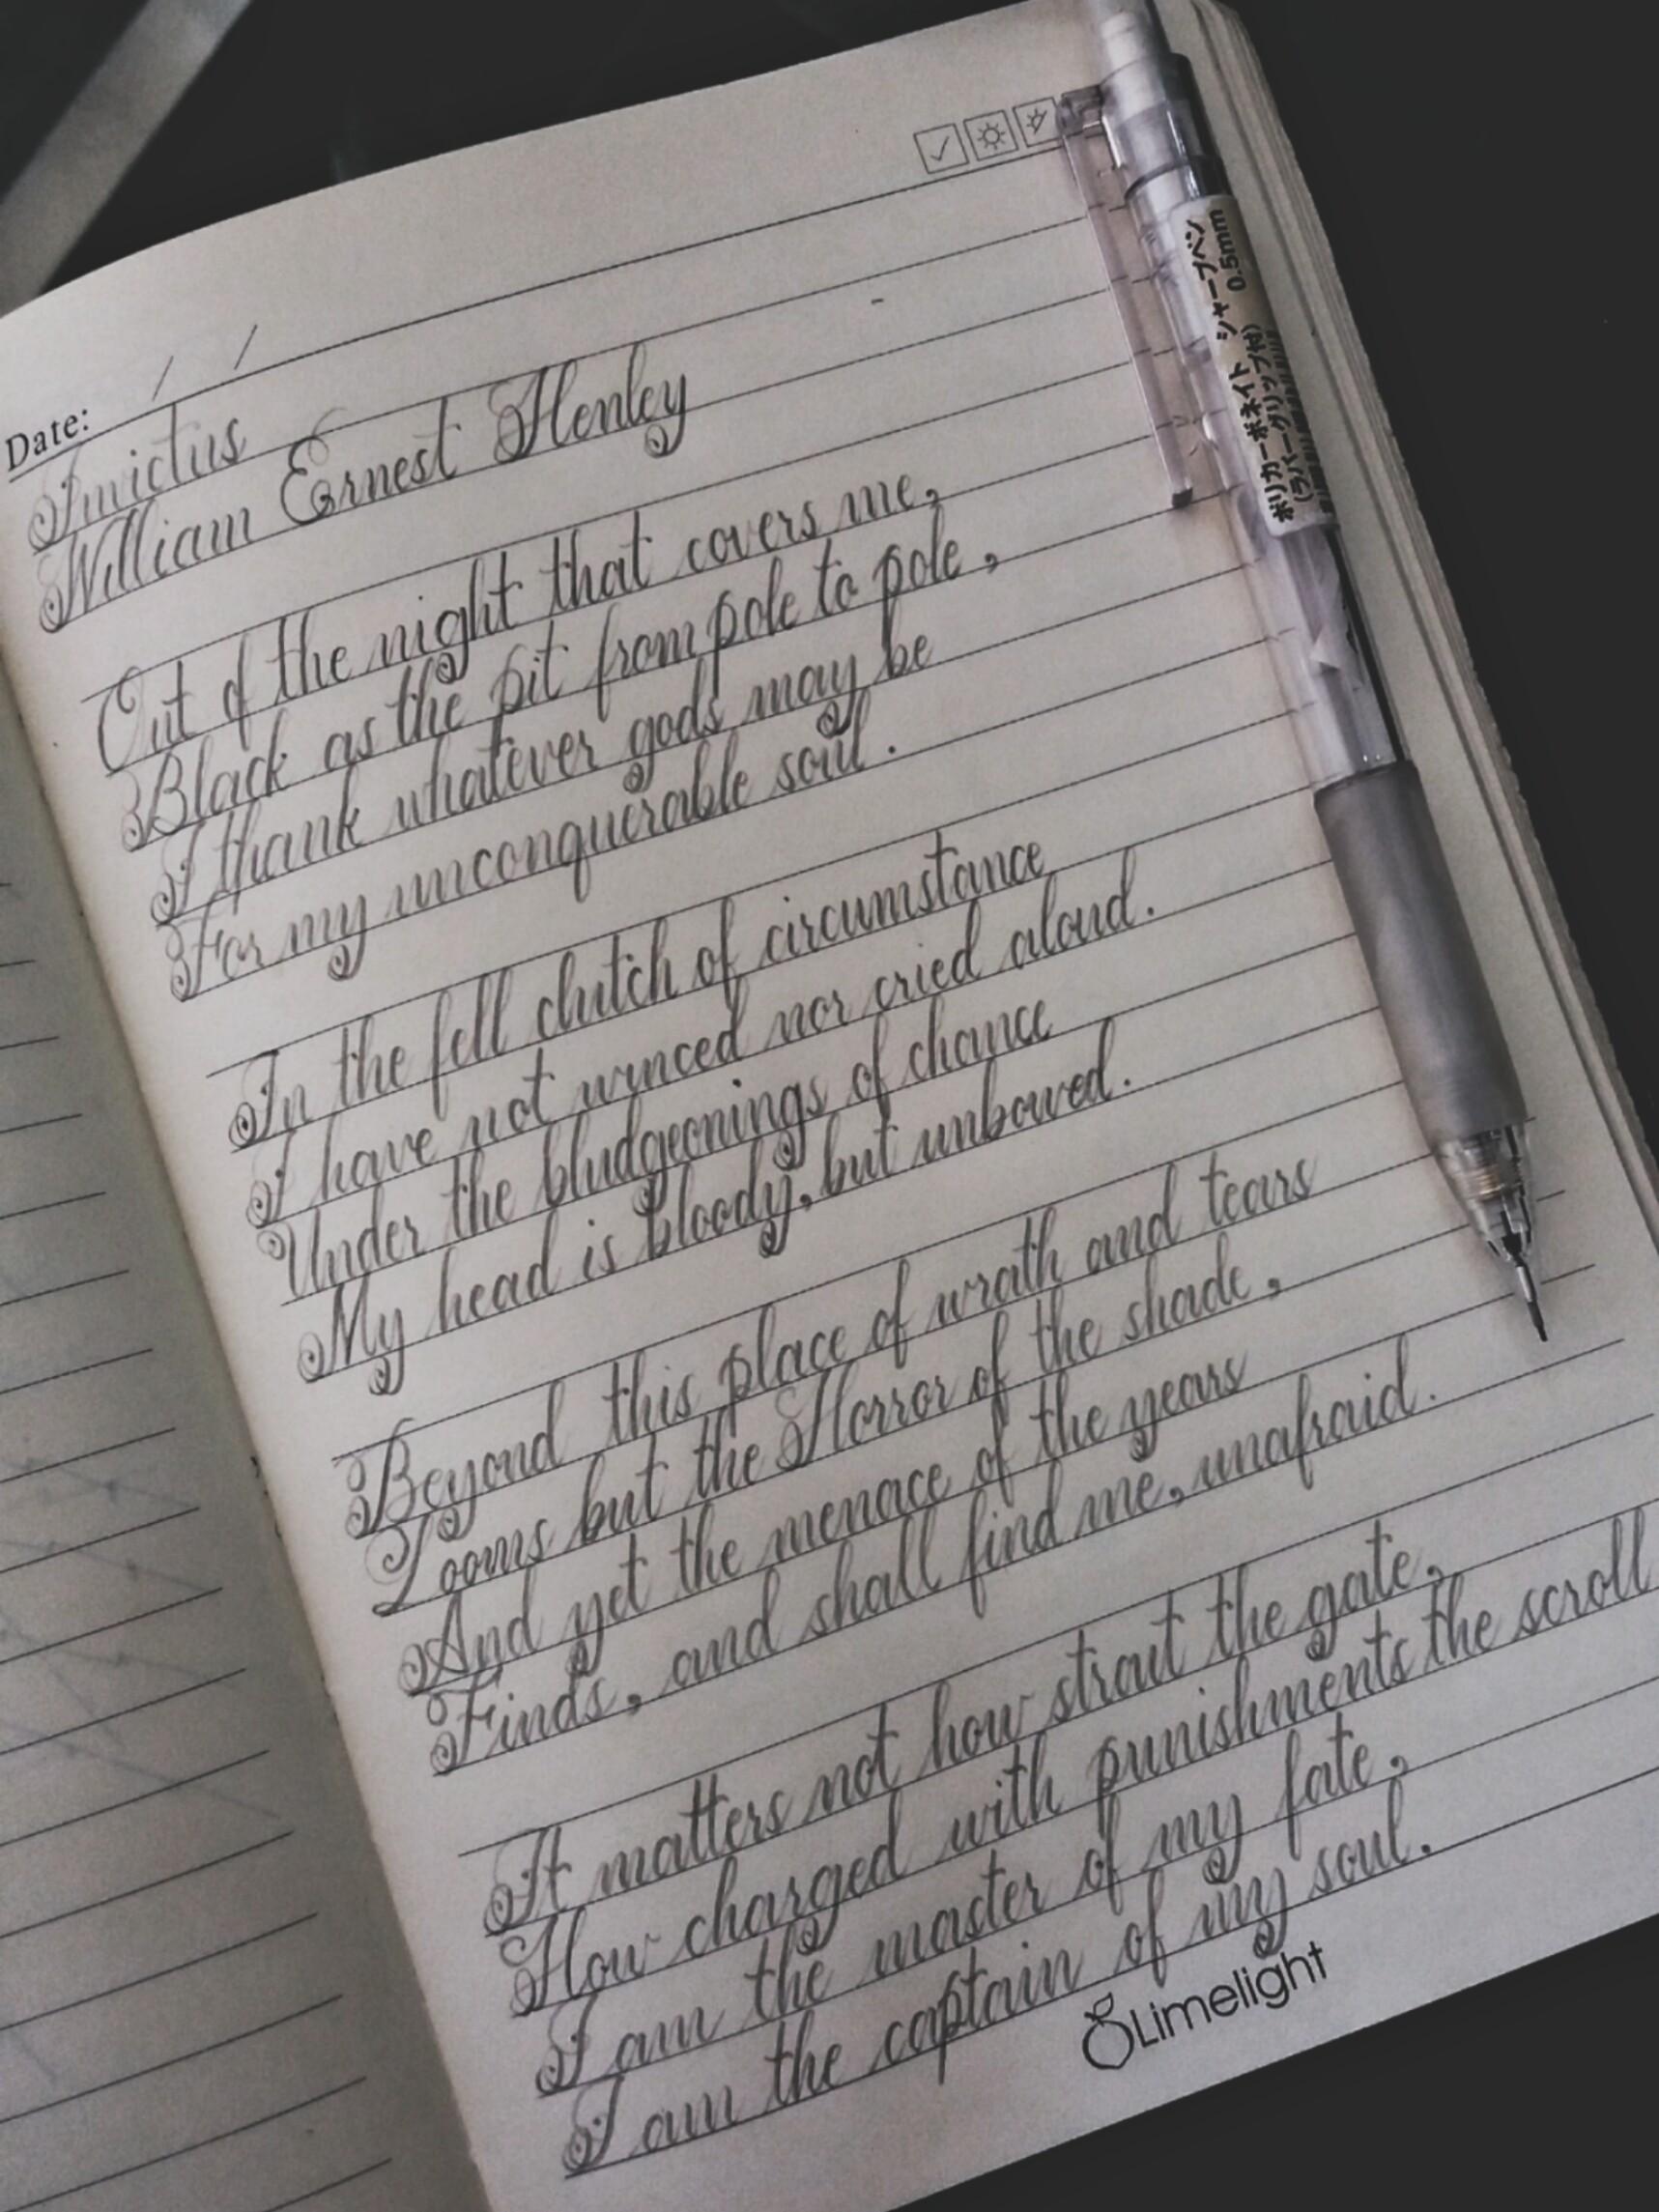 Date: / /
Invictus
William Ernest Henley
Out of the night that covers me,
Black as the pit from pole to pole,
I thank whatever gods may be
For my unconquerable soul.
In the fell clutch of circumstance
I have not winced nor cried aloud.
Under the bludgeonings of chance
My head is bloody, but unbowed.
Beyond this place of wrath and tears
Looms but the Horror of the shade,
And yet the menace of the years
Finds, and shall find me, unafraid.
It matters not how strait the gate,
How charged with punishments the scroll
I am the master of my fate,
I am the captain of my soul.
Limelight
ポリカーボネイト シャープペン
(ラバーグリップ付) 0.5mm